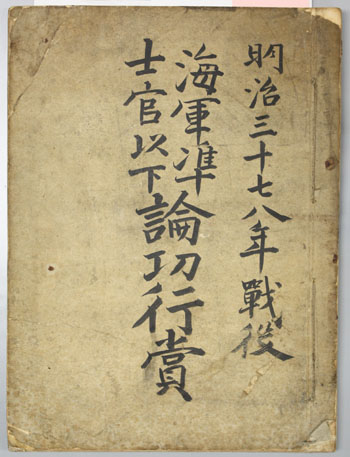 明治三十七八年戰役
海軍準
士官以下
論功行賞